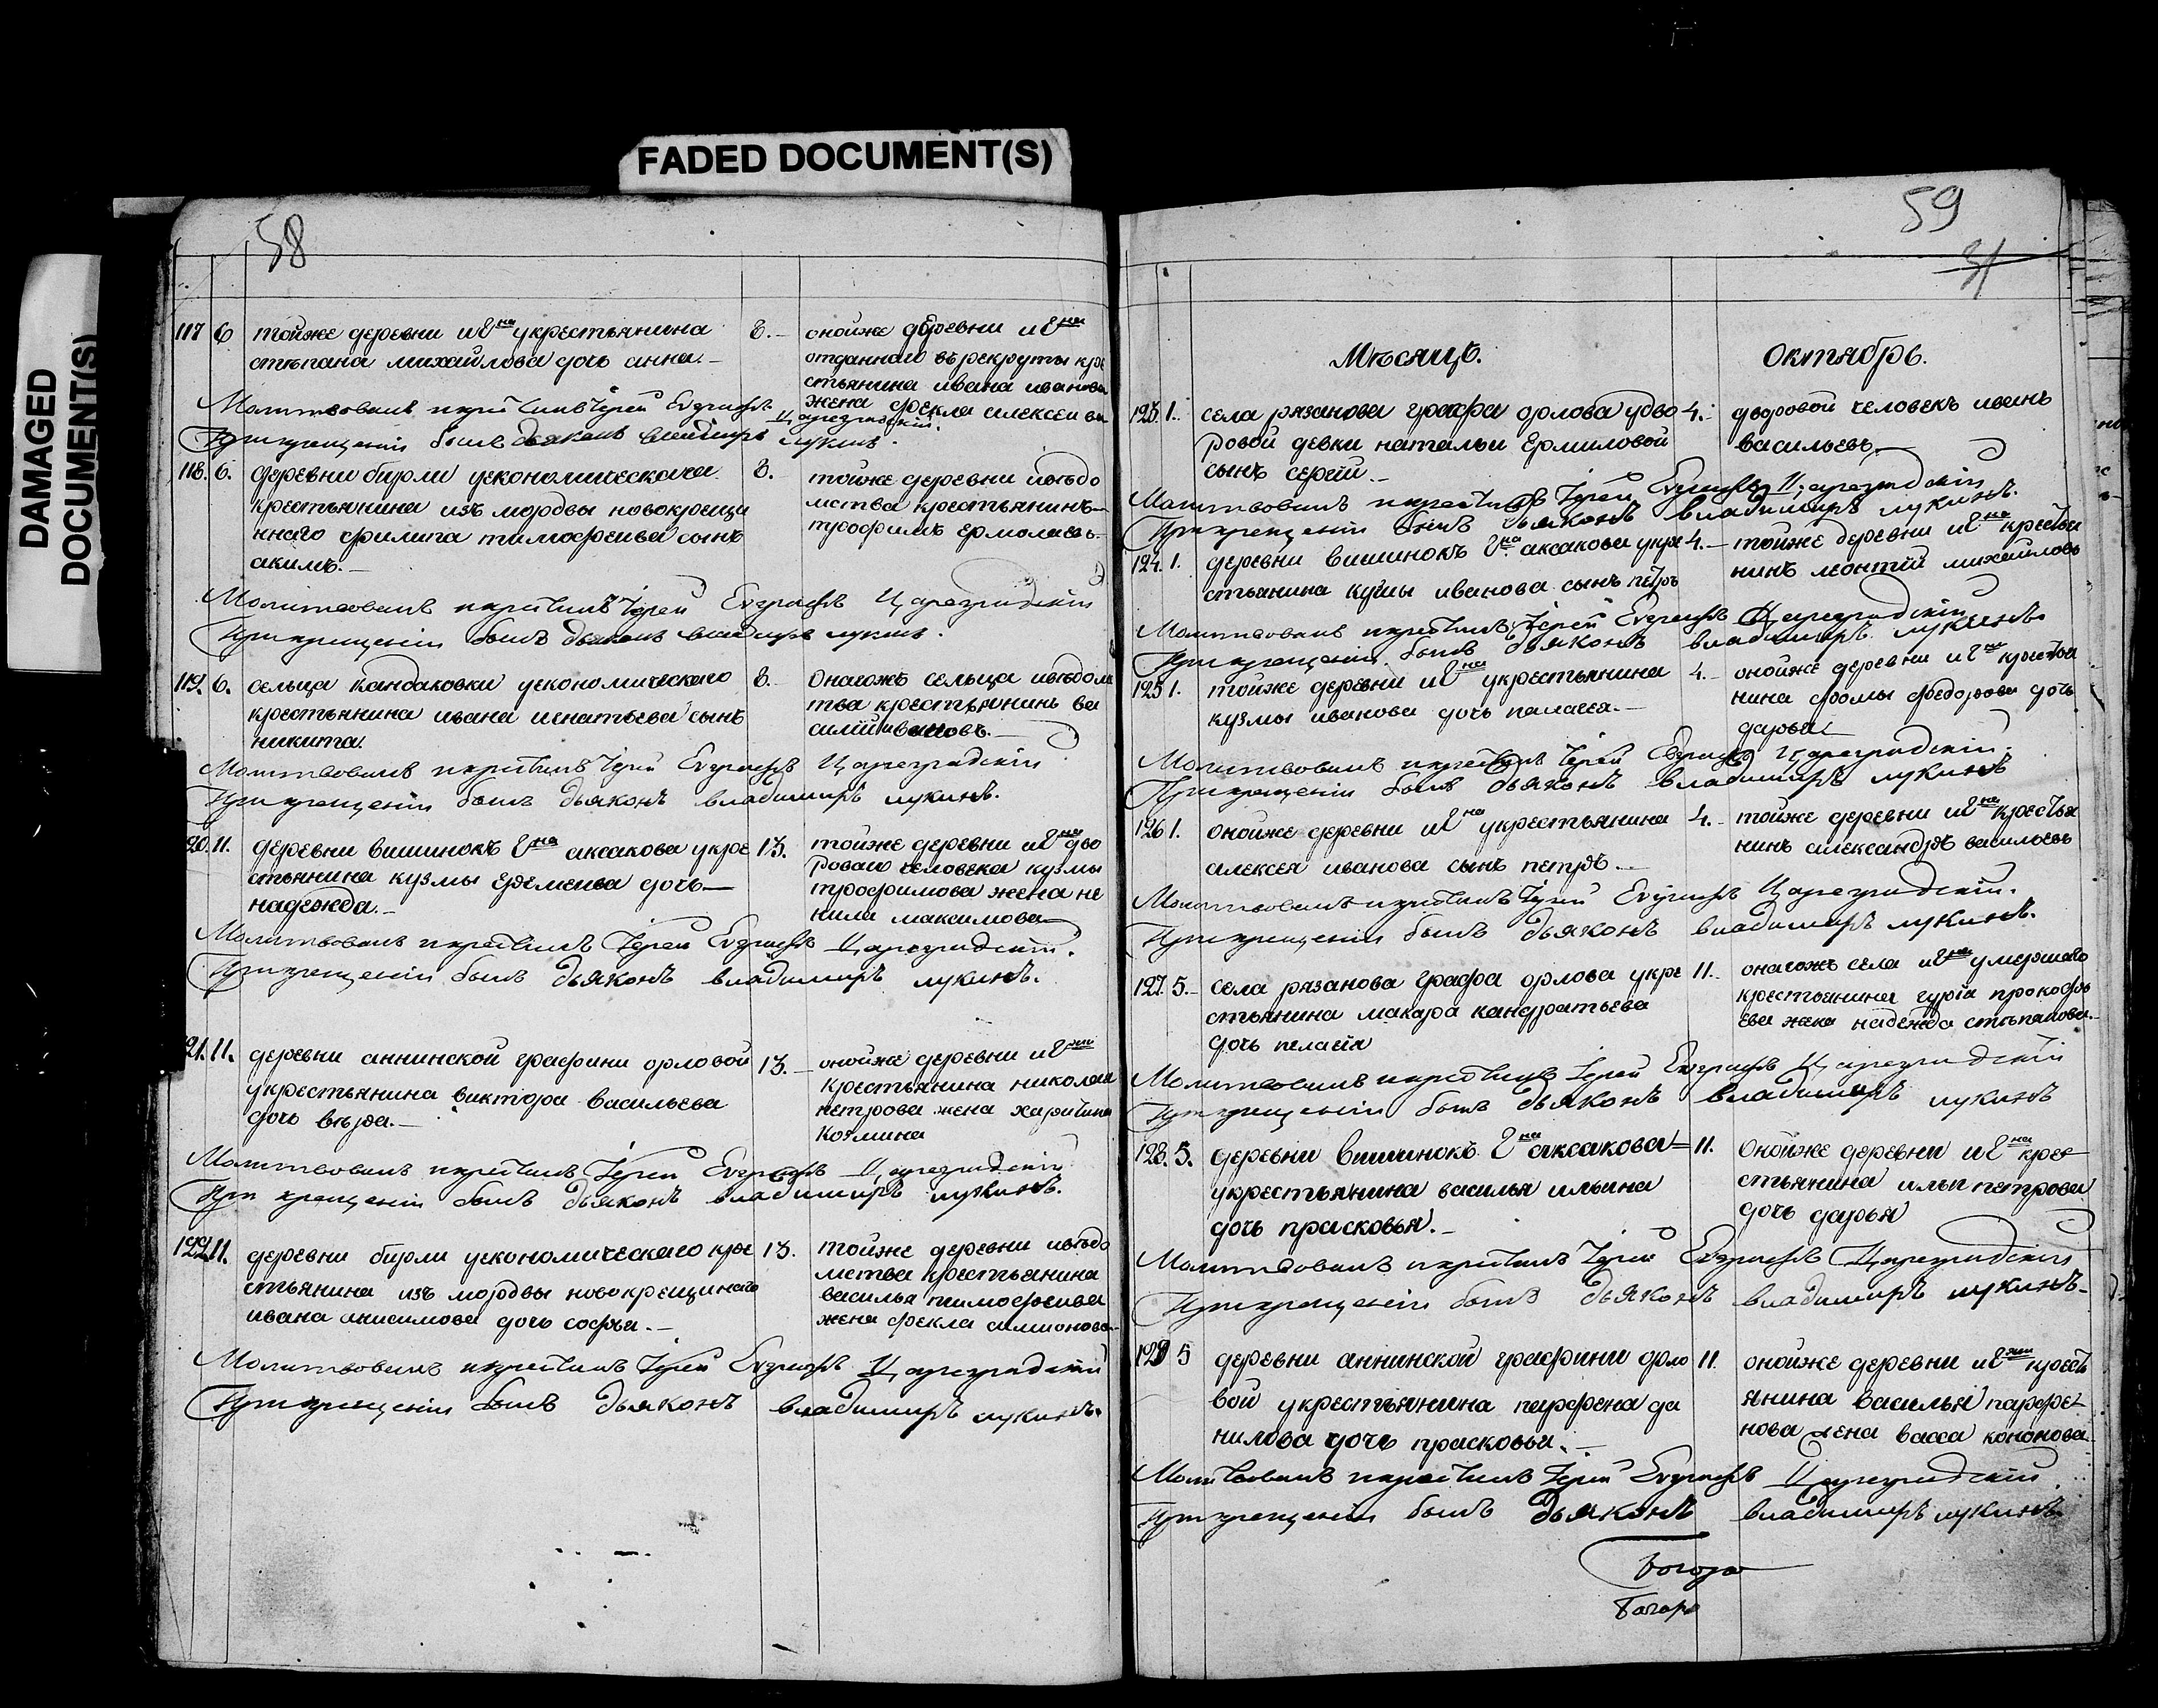 DAMAGED
DOCUMENT(S)
FADED DOCUMENT(S)
58
117 6 тойже деревни и Гна укрестьянина
степана михайлова дочь анна.-
8.- онойже деревни и Гна
отданнаго върекруты кре
стьянина ивана иванова
жена фекла алексеива
Молитвовалъ икрестилъ Іерей Евграфъ Цареградскій.
При крещеніи былъ дьяконъ владимиръ лукинъ.
118. 6. деревни бирли уекономическаго
крестьянина изъ мордвы новокреще
ннаго филипа тимофеива сынъ
акимъ.-
8. тойже деревни ивѣдо
мства крестьянинъ
трофимъ ермолаевъ.
Молитвовалъ икрестилъ Іерей Евграфъ Цареградскій
При крещеніи былъ дьяконъ владимиръ лукинъ.
119. 6. сельца кандаковки уекономическаго
крестьянина ивана игнатьева сынъ
никита.
8. онагожъ сельца ивѣдом
тва крестьянинъ ва
силій ивановъ.-
Молитвовалъ икрестилъ Іерей Евграфъ Цареградскій
При крещеніи былъ дьяконъ владимиръ лукинъ.
120. 11. деревни вишинокъ Гна аксакова укре
стьянина кузмы еремеива дочь-
надежда.-
13. тойже деревни и Гна дво
роваго человека кузмы
трофимова жена не
нила максимова
Молитвовалъ икрестилъ Іерей Евграфъ Цареградскій.
При крещеніи былъ дьяконъ владимиръ лукинъ.
121. 11. деревни аннинской графини орловой
укрестьянина виктора васильева
дочь вѣра.-
13.- онойже деревни и Гжи
крестьянина николая
петрова жена харитина
козмина
Молитвовалъ икрестилъ Іерей Евграфъ Цареградскій
При крещеніи былъ дьяконъ владимиръ лукинъ.
122. 11. деревни бирли уекономическаго кре
стьянина изъ мордвы новокрещинаго
ивана анисимова дочь софья.-
13. тойже деревни ивѣдо
мства крестьянина
василья тимофеива
жена фекла симионова.-
Молитвовалъ икрестилъ Іерей Евграфъ Цареградскій
При крещеніи былъ дьяконъ владимиръ лукинъ.
59
31
Мѣсяцъ. Октябрь.
123. 1. села рязанова графа орлова удво
ровой девки натальи Ермиловой
сынъ сергій.-
4. дворовой человекъ иванъ
васильевъ
Молитвовалъ икрестилъ Іерей Евграфъ Цареградскій
При крещеніи былъ дьяконъ владимиръ лукинъ.
124. 1. деревни вишинокъ Гна аксакова укре
стьянина кузмы иванова сынъ петръ
4.- тойже деревни и Гна крестья
нинъ леонтій михайловъ
Молитвовалъ икрестилъ Іерей Евграфъ Цареградскій
При крещеніи былъ дьяконъ владимиръ лукинъ
125 1. тойже деревни и Гна укрестьянина
кузмы иванова дочь палагея.-
4.- онойже деревни и Гна крестья
нина фомы федорова дочь
дарья
Молитвовалъ икрестилъ Іерей Евграфъ Цареградскій.
При крещеніи былъ дьяконъ владимиръ лукинъ
126 1. онойже деревни и Гна укрестьянина
алексея иванова сынъ петръ.-
4.- тойже деревни и Гна крестья
нинъ александръ васильевъ
Молитвовалъ икрестилъ Іерей Евграфъ Цареградскій.
При крещеніи былъ дьяконъ владимиръ лукинъ.
127. 5.- села рязанова графа орлова укре
стьянина макара кандратьева
дочь пелагія
11.- онагожъ села и Гна умершаго
крестьянина гурія прокофь
ева жена надежда степанова.-
Молитвовалъ икрестилъ Іерей Евграфъ Цареградскій
При крещеніи былъ дьяконъ владимиръ лукинъ
128. 5. деревни вишинокъ Гна аксакова=
укрестьянина василья ильина
дочь прасковья.-
11. онойже деревни и Гна кре=
стьянина ильи петрова
дочь дарья
Молитвовалъ икрестилъ Іерей Евграфъ Цареградскій
При крещеніи былъ дьяконъ владимиръ лукинъ-
129 5 деревни аннинской графини орло
вой укрестьянина парфена да
нилова дочь прасковья.-
11. онойже деревни и Гжи крестъ
янина василья парфе=
нова жена васса кононова.
Молитвовалъ икрестилъ Іерей Евграфъ Цареградскій
При крещеніи былъ дьяконъ владимиръ лукинъ